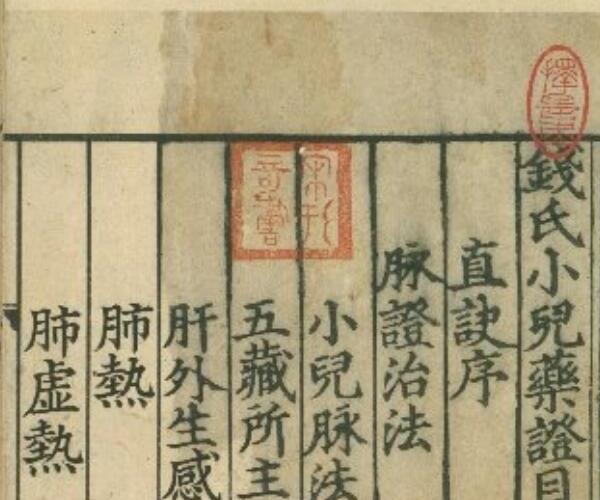 錢氏小兒藥證目
直訣序
脉證治法
小兒脉法
五藏所主
肝外生感
肺熱
肺虛熱